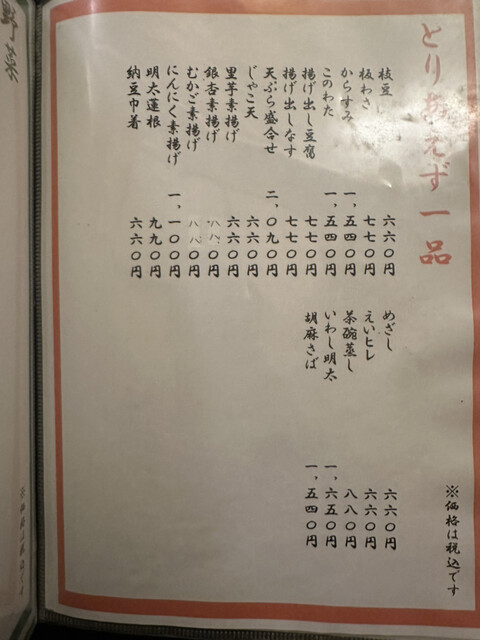 とりあえず一品
枝豆 六六〇円
板わさ 七七〇円
からすみ 一、五四〇円
このわた 一、五四〇円
揚げ出し豆腐 七七〇円
揚げ出しなす 七七〇円
天ぷら盛合せ 二、〇九〇円
じゃこ天 六六〇円
里芋素揚げ 六六〇円
銀杏素揚げ 八八〇円
むかご素揚げ 八八〇円
にんにく素揚げ 一、一〇〇円
明太蓮根 九九〇円
納豆巾着 六六〇円
めざし 六六〇円
えいヒレ 六六〇円
茶碗蒸し 八八〇円
いわし明太 一、六五〇円
胡麻さば 一、五四〇円
※価格は税込です
野菜
※価格は税込です